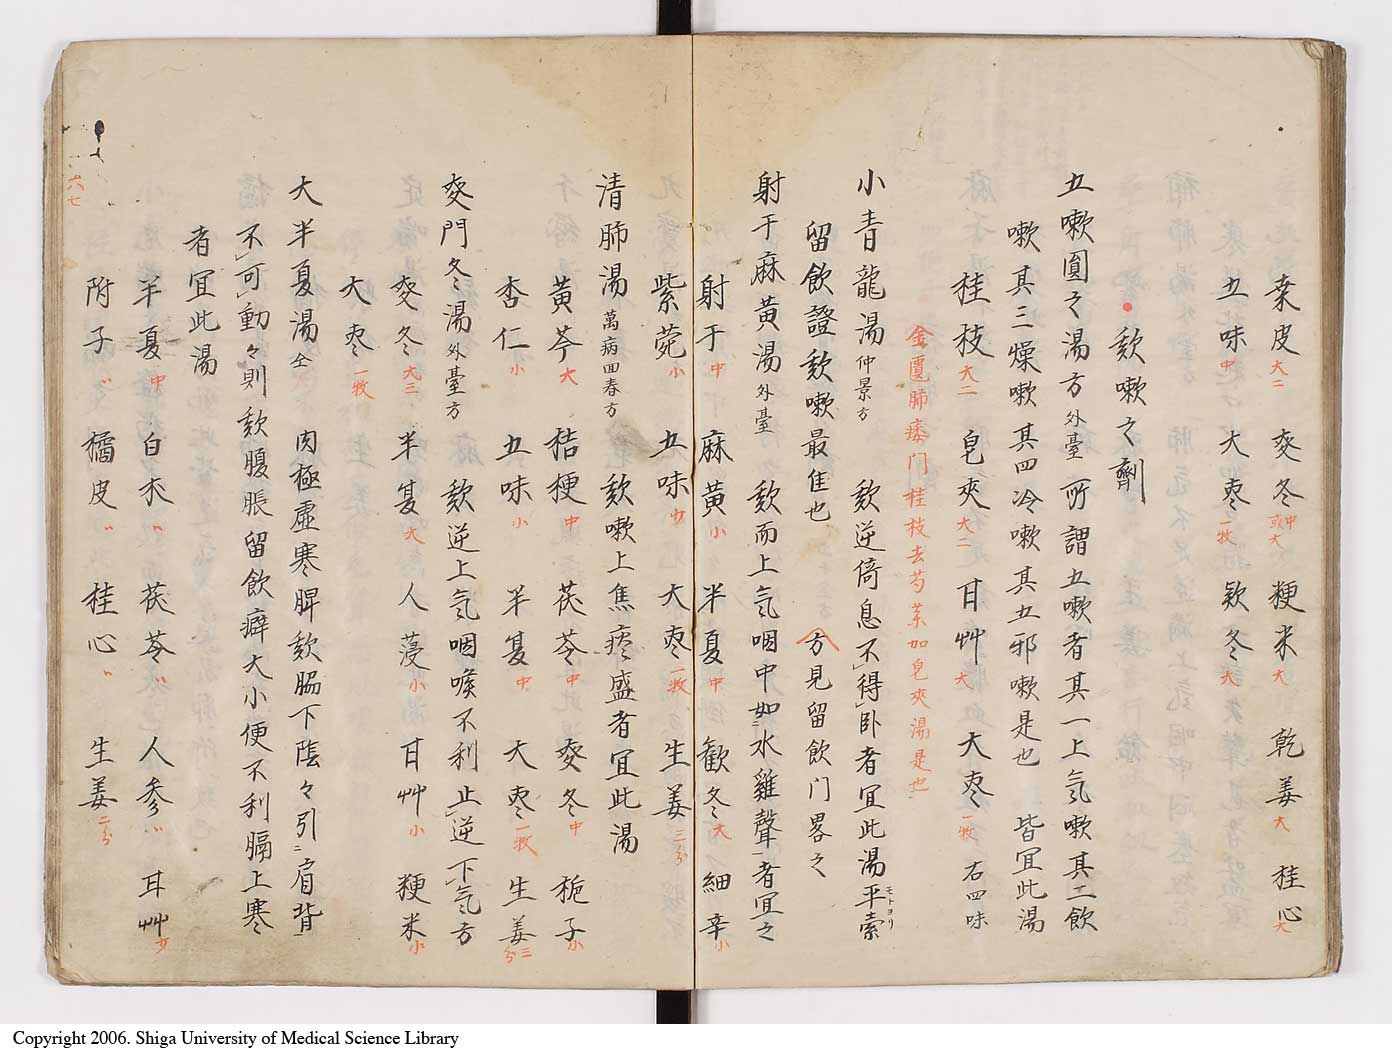 桒皮大二 麥冬中或大 粳米大 乾姜大 桂心大
五味中 大枣一牧 欵冬大
欬嗽之劑
五嗽圓之湯方外臺 所謂五嗽者其一上気嗽其二飲
嗽其三燥嗽其四冷嗽其五邪嗽是也 皆冝此湯
桂枝大二 皂夾大二 甘艸大 大枣一牧 右四味
金匱肺痿门桂枝去芍茱加皂夾湯是也
小青龍湯仲景方 欬逆倚息不得卧者冝此湯平索モトヨリ
留飲證欬嗽最佳也 方見留飲门畧之
射于麻黄湯外臺 欬而上気咽中如水雞聲者冝之
射于中 麻黄小 半夏中 歓冬大 細辛小
紫菀小 五味少 大枣一牧 生姜三分
清肺湯萬病回春方 欬嗽上焦痰盛者冝此湯
黄芩大 桔梗中 茯苓中 麥冬中 梔子小
杏仁小 五味小 半夏中 大枣一牧 生姜三分
麥門冬湯外臺方 欬逆上気咽喉不利止逆下気方
麥冬大三 半夏大 人蓡小 甘艸小 粳米小
大枣一牧
大半夏湯仝 肉極虚寒脾欬脇下陰々引肩背
不可動々則欬腹脹留飲癖大小便不利膈上寒
者冝此湯
半夏中 白朮〃 茯苓〃 人参〃 甘艸少
附子〃 橘皮〃 桂心〃 生姜二分
六七
Copyright 2006. Shiga University of Medical Science Library